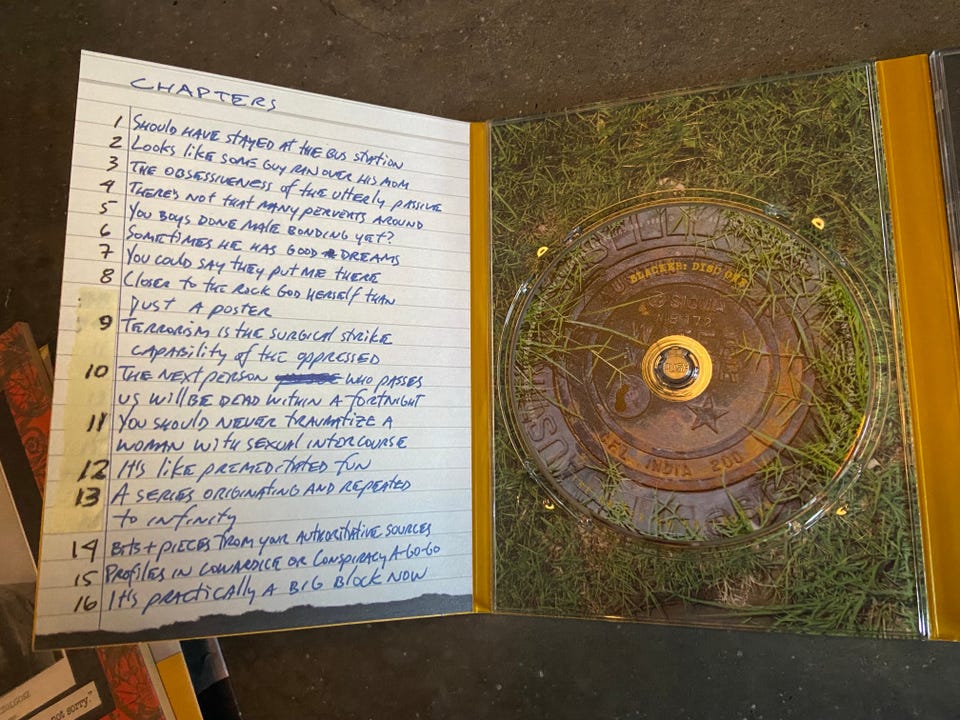 CHAPTERS
1 SHOULD HAVE STAYED AT THE BUS STATION
2 LOOKS LIKE SOME GUY RAN OVER HIS MOM
3 THE OBSESSIVENESS OF THE UTTERLY PASSIVE
4 THERE'S NOT THAT MANY PERVERTS AROUND
5 YOU BOYS DONE MALE BONDING YET?
6 SOMETIMES HE HAS GOOD DREAMS
7 YOU COULD SAY THEY PUT ME THERE
8 CLOSER TO THE ROCK GOD HERSELF THAN
JUST A POSTER
9 TERRORISM IS THE SURGICAL STRIKE
CAPABILITY OF THE OPPRESSED
10 THE NEXT PERSON WHO PASSES
US WILL BE DEAD WITHIN A FORTNIGHT
11 YOU SHOULD NEVER TRAUMATIZE A
WOMAN WITH SEXUAL INTERCOURSE
12 IT'S LIKE PREMEDITATED FUN
13 A SERIES ORIGINATING AND REPEATED
TO INFINITY
14 BITS + PIECES FROM YOUR AUTHORITATIVE SOURCES
15 PROFILES IN COWARDICE OR CONSPIRACY A-GO-GO
16 IT'S PRACTICALLY A BIG BLOCK NOW
SLACKER: DISC ONE
SIGMA
INDIA 200
not sorry."